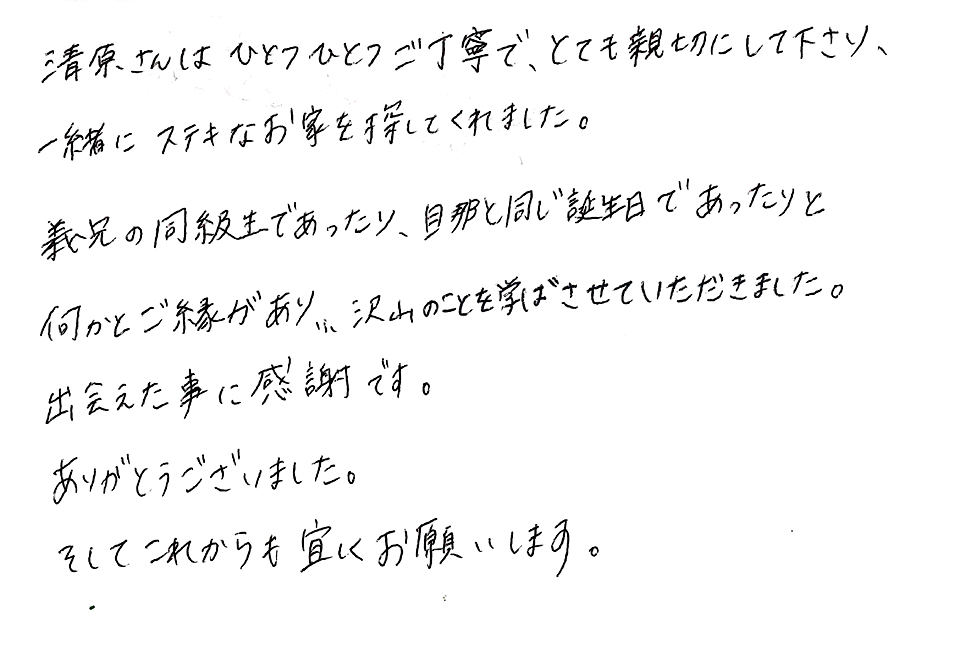 清原さんは ひとつひとつご丁寧で、とても親切にして下さり、
一緒に ステキなお家を探してくれました。
義兄の同級生であったり、旦那と同じ誕生日であったりと
何かとご縁があり… 沢山のことを学ばさせていただきました。
出会えた事に感謝です。
ありがとうございました。
そしてこれからも宜しくお願いします。